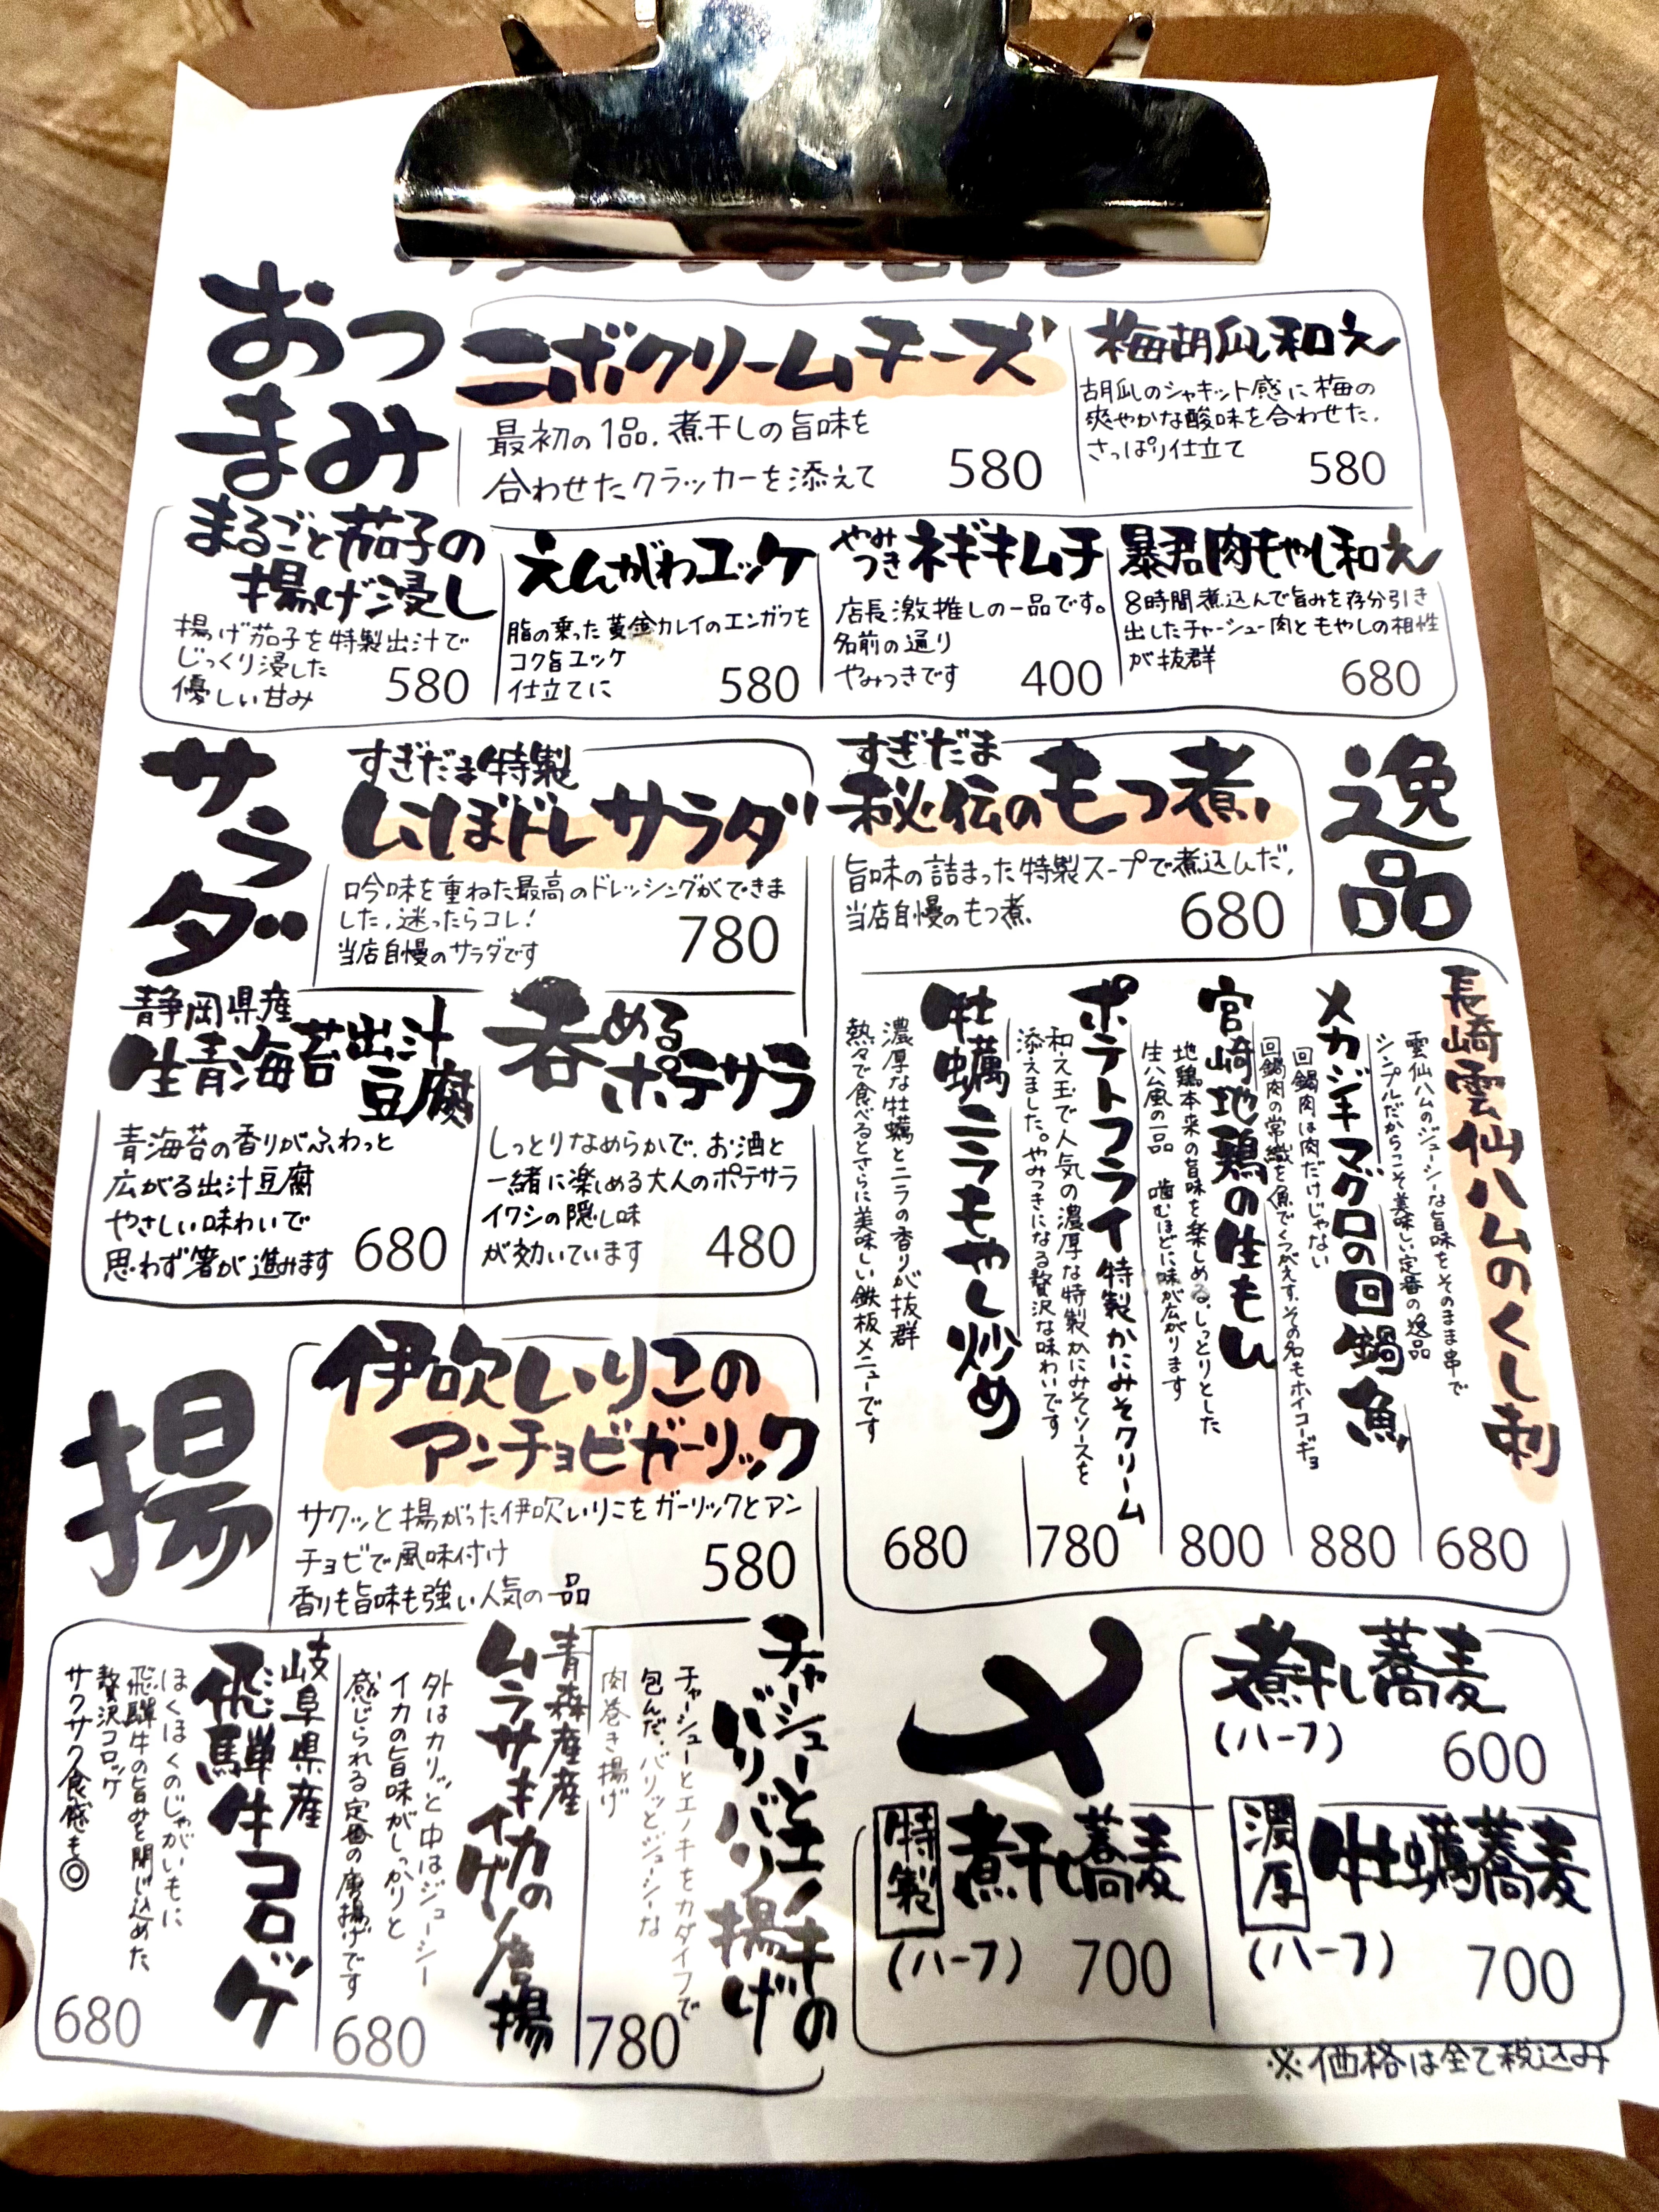 おつ
まみ
ニボクリームチーズ
最初の1品、煮干しの旨味を
合わせたクラッカーを添えて
580
梅胡瓜和え
胡瓜のシャキット感に梅の
爽やかな酸味を合わせた、
さっぱり仕立て
580
まるごと茄子の
揚げ浸し
揚げ茄子を特製出汁で
じっくり浸した
優しい甘み
580
えんがわユッケ
脂の乗った黄金カレイのエンガワを
コク旨ユッケ
仕立てに
580
やみ
つき
ネギキムチ
店長激推しの一品です。
名前の通り
やみつきです
400
暴君肉もやし和え
8時間煮込んで旨みを存分引き
出したチャーシュー肉ともやしの相性
が抜群
680
サラダ
すぎだま特製
にぼドレサラダ
吟味を重ねた最高のドレッシングができま
した、迷ったらコレ!
当店自慢のサラダです
780
静岡県産
生青海苔出汁
豆腐
青海苔の香りがふわっと
広がる出汁豆腐
やさしい味わいで
思わず箸が進みます
680
呑める
ポテサラ
しっとりなめらかで、お酒と
一緒に楽しめる大人のポテサラ
イワシの隠し味
が効いています
480
逸品
すぎだま
秘伝のもつ煮
旨味の詰まった特製スープで煮込んだ、
当店自慢のもつ煮
680
長崎雲仙ハムのくし刺
雲仙ハムのジューシーな旨味をそのまま串で
シンプルだからこそ美味しい定番の逸品
680
メカジキマグロの回鍋魚
回鍋肉は肉だけじゃない
回鍋肉の常識を魚でくつがえす、その名もホイコーギョ
880
宮崎地鶏の生もし
地鶏本来の旨味を楽しめる、しっとりとした
生ハム風の一品 噛むほどに味が広がります
800
ポテトフライ特製かにみそクリーム
和え玉で人気の濃厚な特製かにみそソースを
添えました。やみつきになる贅沢な味わいです
780
牡蠣ニラもやし炒め
濃厚な牡蠣とニラの香りが抜群
熱々で食べるとさらに美味しい鉄板メニューです
680
揚
伊吹いりこの
アンチョビガーリック
サクッと揚がった伊吹いりこをガーリックとアン
チョビで風味付け
香りも旨味も強い人気の一品
580
チャーシューとエノキの
バリバリ揚げ
チャーシューとエノキをカダイフで
包んだ、バリッとジューシーな
肉巻き揚げ
780
青森産産
ムラサキイカの
イゲソ唐揚
外はカリッと中はジューシー
イカの旨味がしっかりと
感じられる定番の唐揚げです
680
岐阜県産
飛騨牛コロッケ
ほくほくのじゃがいもに
飛騨牛の旨みを閉じ込めた
贅沢コロッケ
サクサク食感も◎
680
〆
煮干し蕎麦
(ハーフ)
600
特製
煮干し蕎麦
(ハーフ)
700
濃厚
牡蠣蕎麦
(ハーフ)
700
※価格は全て税込み